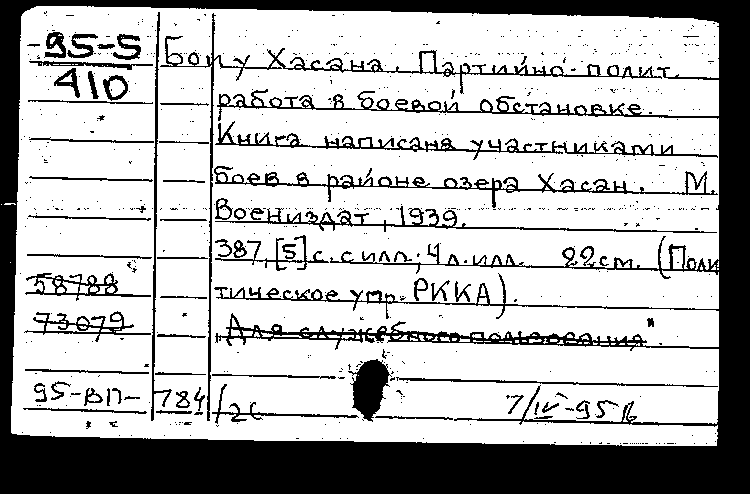 95-5 Бои у Хасана. Партийно-полит.
410 работа в боевой обстановке.
Книга написана участниками
боев в районе озера Хасан. М.
Воениздат, 1939.
387, [5] с. с илл.; 4 л. илл. 22 см. (Поли
58788 тическое упр. РККА).
73079 "Для служебного пользования".
95-ВП- 784 7/IV-95